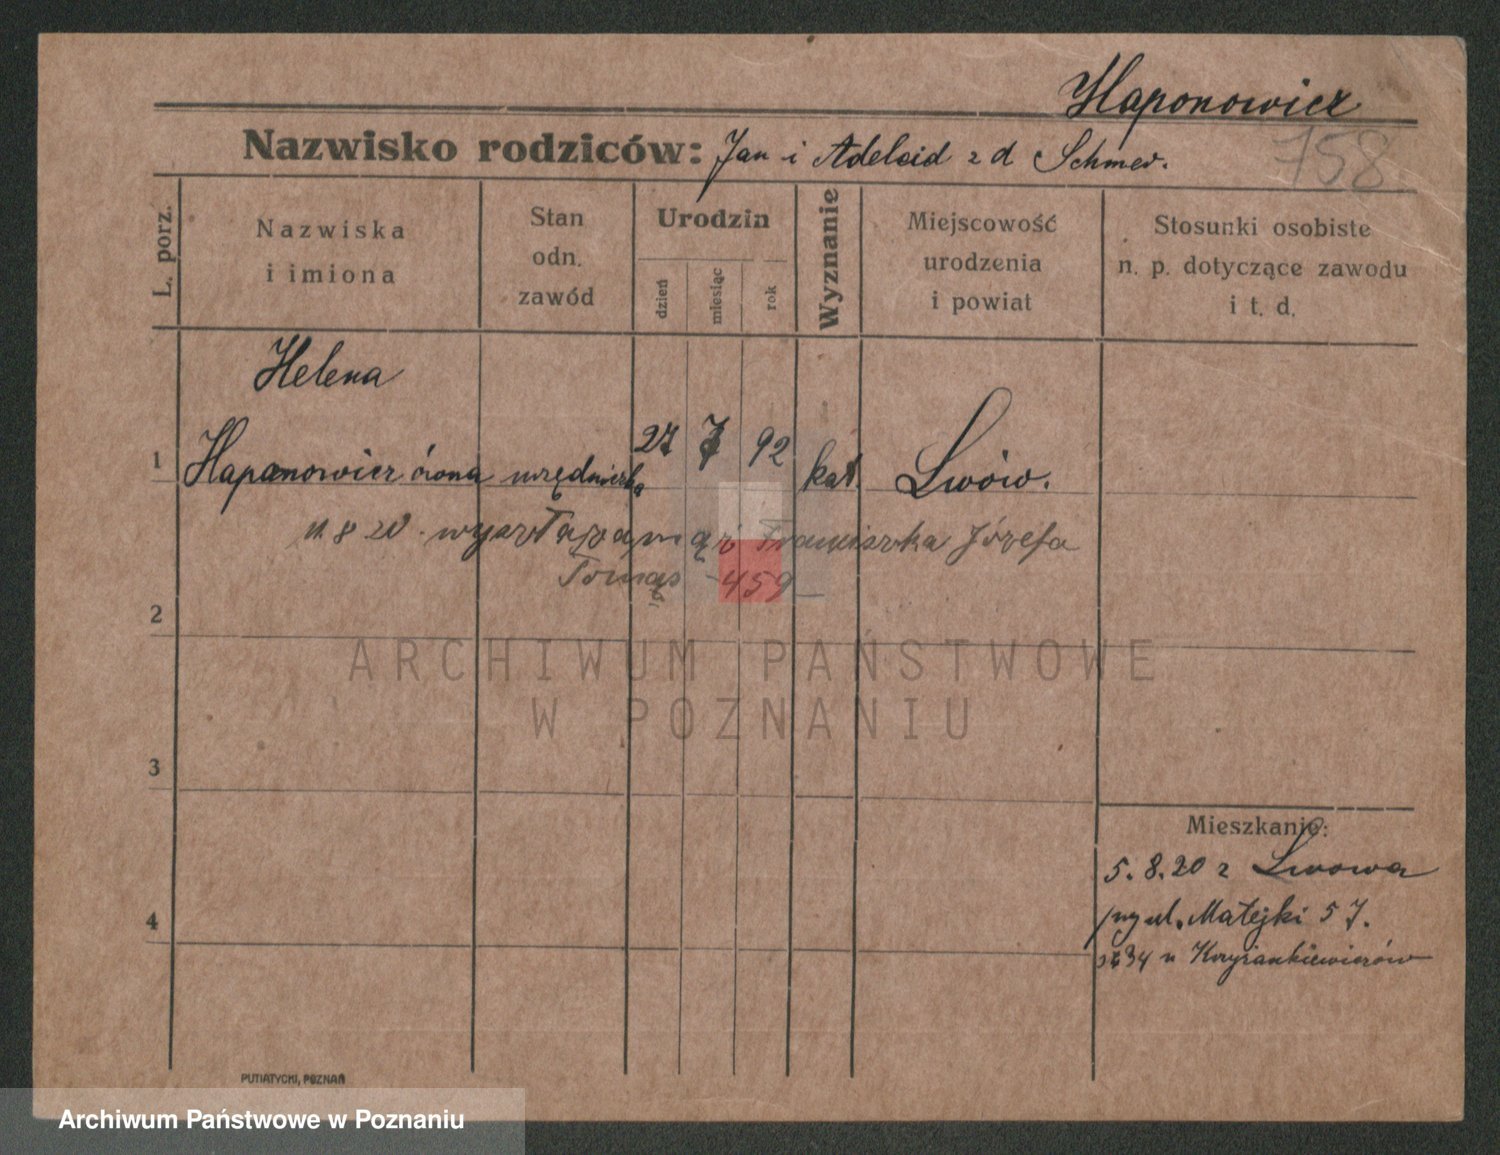 Haponowicz
758
Nazwisko rodziców: Jan i Adelaid z d Schmer.
L. porz.
Nazwiska
i imiona
Stan
odn.
zawód
Urodzin
dzień
miesiąc
rok
Wyznanie
Miejscowość
urodzenia
i powiat
Stosunki osobiste
n. p. dotyczące zawodu
i t. d.
Helena
1 Hapanowiczówna urzędniczka 27 7 92 kat. Lwów.
11.8 20. wyszła zamąż Franciszka Józefa
2 Tomas - 459
ARCHIWUM PAŃSTWOWE
W POZNANIU
3
Mieszkanie:
5. 8. 20 z Lwowa
przy ul. Matejki 57.
4
34 u Krzyżankiewiczów
PUTIATYCKI, POZNAŃ
Archiwum Państwowe w Poznaniu